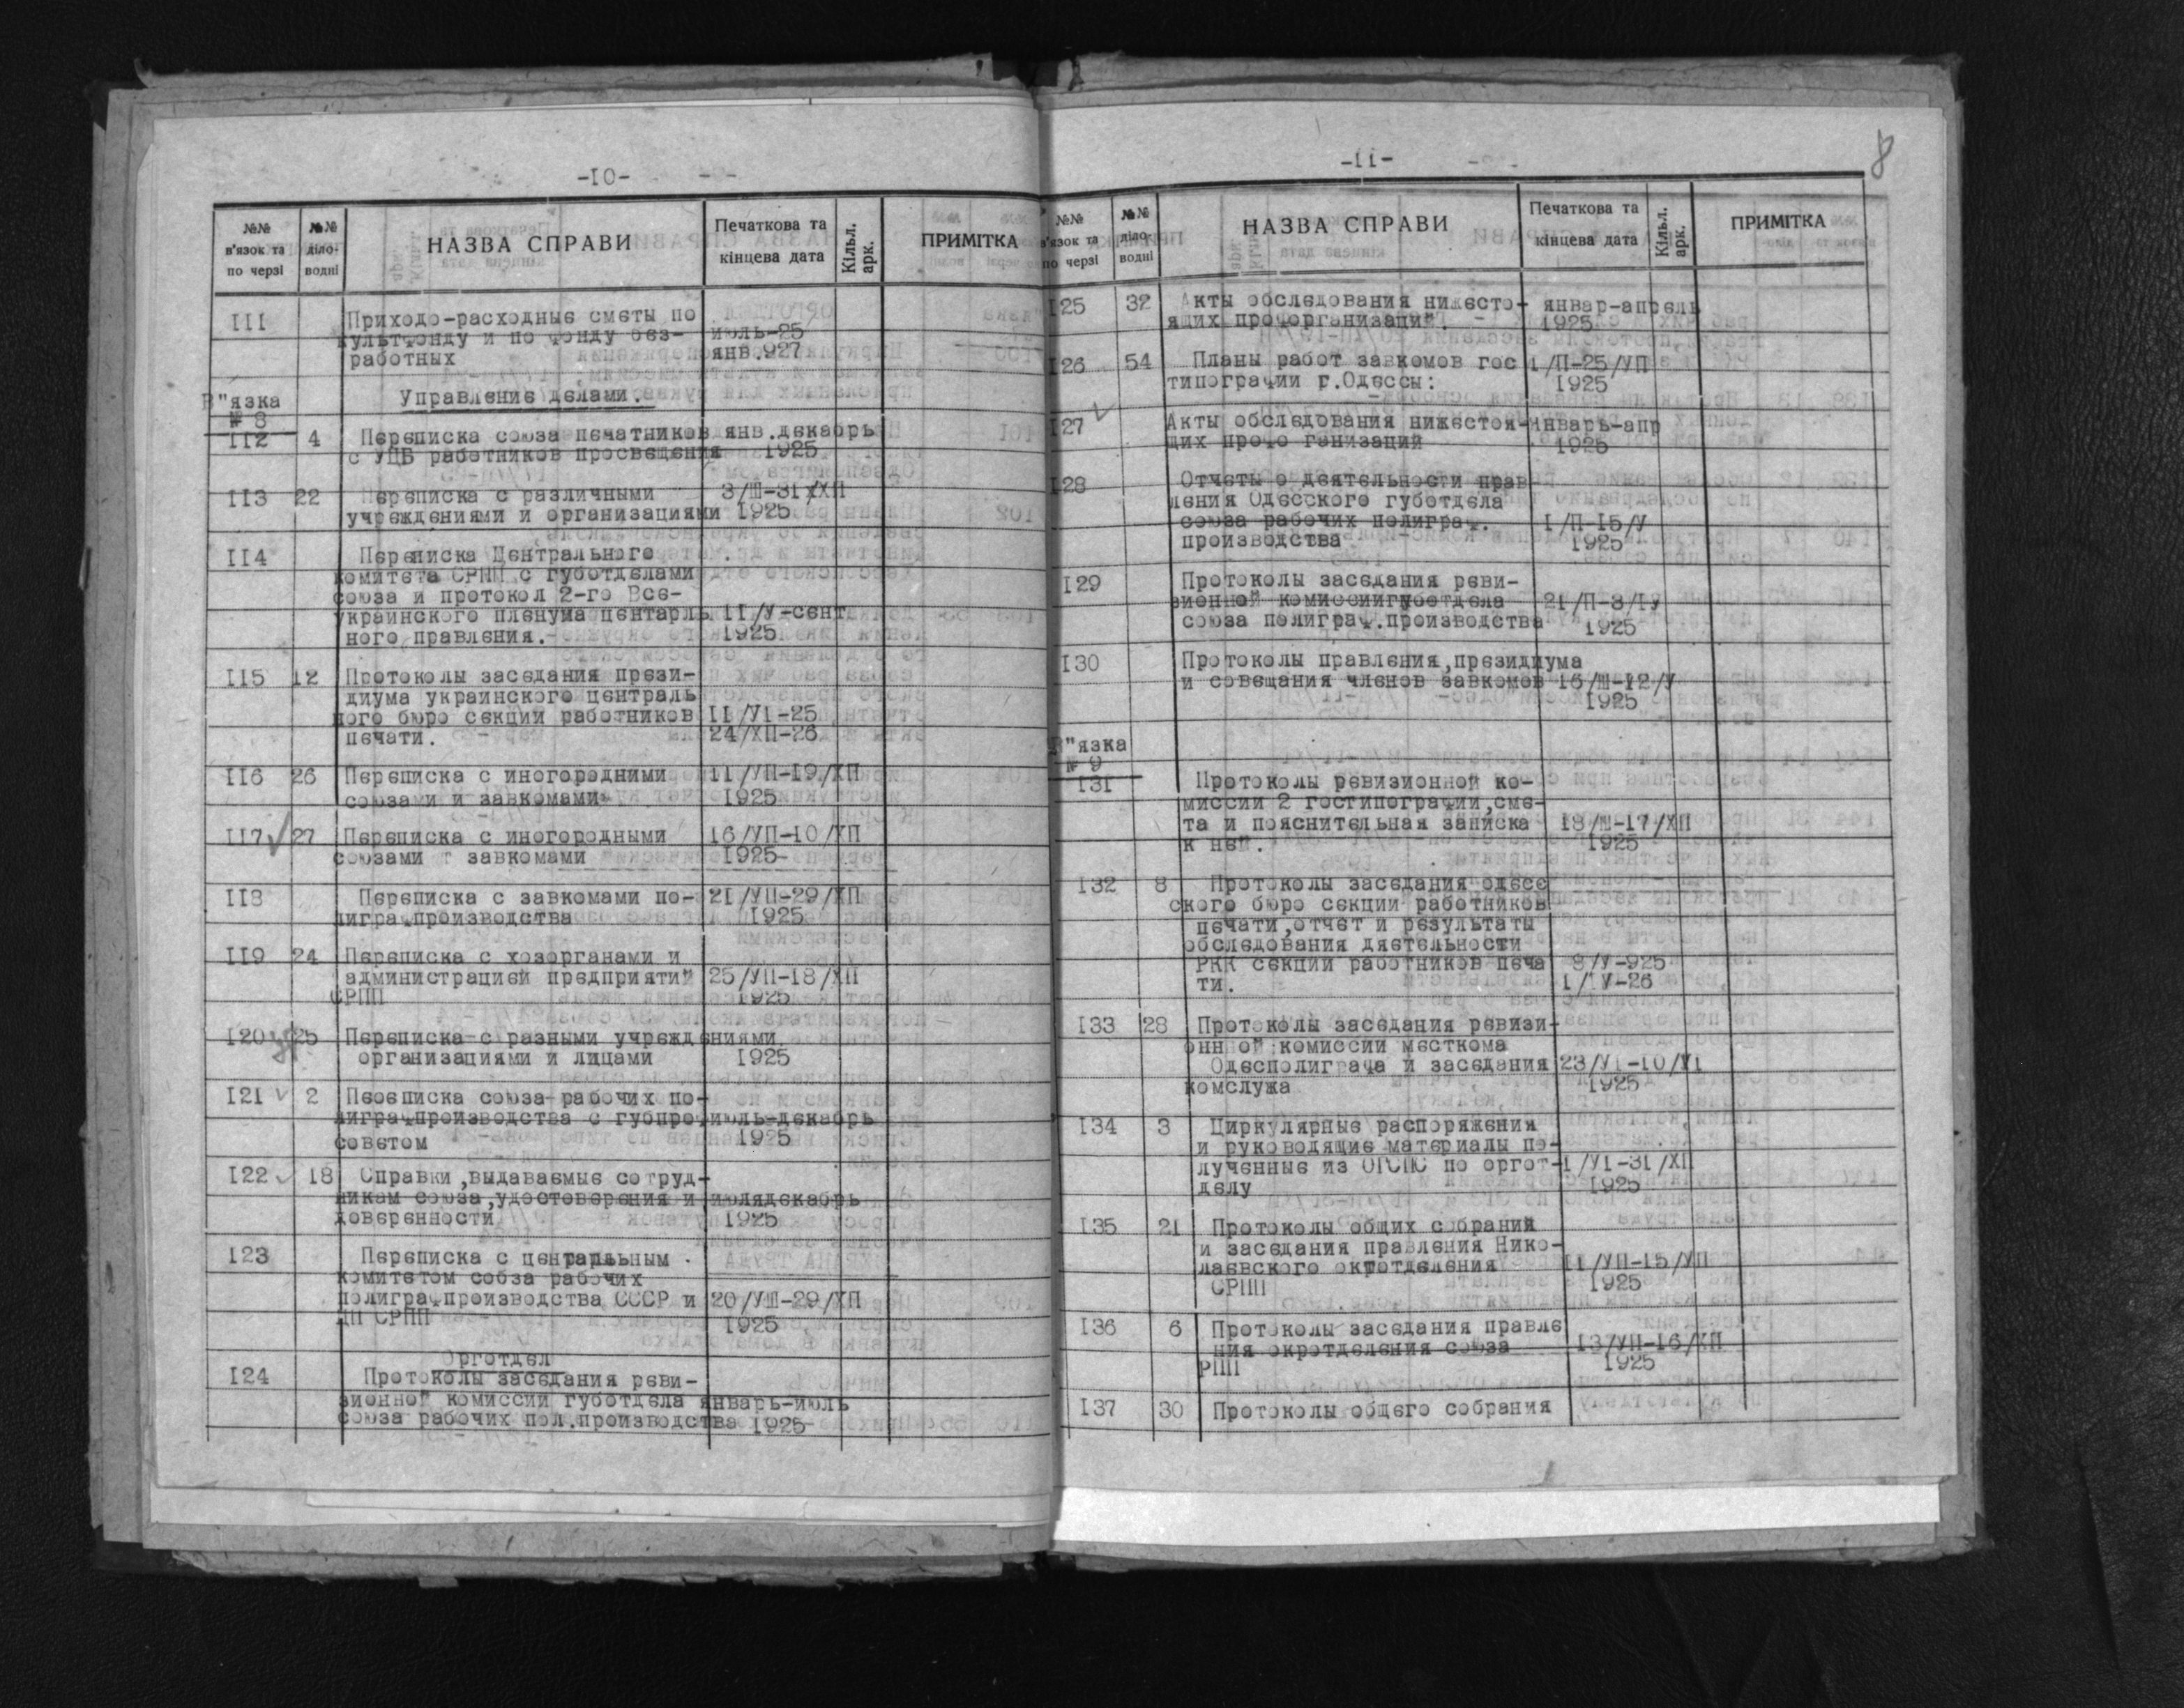 -10-
№№ в'язок та по черзі
№№ діло-водні
НАЗВА СПРАВИ
Печаткова та кінцева дата
Кільк. арк.
ПРИМІТКА
111 Приходо-расходные сметы по
культфонду и по фонду без- июль-25
работных янв.927
В"язка Управление делами.
№ 8
112 4 Переписка союза печатников янв.декабрь
с УЦБ работников просвещения 1925
113 22 Переписка с различными 3/Ш-31/ХП
учреждениями и организациями 1925
114 Переписка Центрального
комитета СРПП с губотделами
союза и протокол 2-го Все-
украинского пленума центарль 11/У-сент.
ного правления. 1925
115 12 Протоколы заседания прези-
диума украинского централь
ного бюро секции работников 11/У1-25
печати. 24/ХП-26
116 26 Переписка с иногородними 11/УП-19/ХП
союзами и завкомами 1925
117 27 Переписка с иногородными 16/УП-10/ХП
союзами т завкомами 1925
118 Переписка с завкомами по- 21/УП-29/ХП
лиграф.производства 1925
119 24 Переписка с хозорганами и
администрацией предприятий 25/УП-18/ХП
СРПП 1925
120 25 Переписка с разными учреждениями
организациями и лицами 1925
121 2 Переписка союза рабочих по-
лиграфпроизводства с губпро июль-декабрь
советом 1925
122 18 Справки,выдаваемые сотруд-
никам союза,удостоверения и июлядекабрь
доверенности 1925
123 Переписка с центарльным
комитетом собза рабочих
полиграфпроизводства СССР и 20/УШ-29/ХП
ЦП СРПП 1925
Орготдел
124 Протоколы заседания реви-
зионной комиссии губотдела январь-июль
союза рабочих пол.производства 1925
8
-11-
№№ в'язок та по черзі
№№ діло-водні
НАЗВА СПРАВИ
Печаткова та кінцева дата
Кільк. арк.
ПРИМІТКА
125 32 Акты обследования нижесто- январ-апрель
ящих профорганизаций. 1925
126 54 Планы работ завкомов гос 1/П-25/УП
типографии г.Одессы: 1925
127 Акты обследования нижестоя-январь-апр
щих профо ганизаций 1925
128 Отчеты о деятельности прав
ления Одесского губотдела
союза рабочих полиграф. 1/П-15/У
производства 1925
129 Протоколы заседания реви-
зионной комиссиигуботдела 21/П-3/1У
союза полиграф.производства 1925
130 Протоколы правления,президиума
и совещания членов завкомов 16/Ш-12/У
1925
В"язка
№ 9
131 Протоколы ревизионной ко-
миссии 2 гостипографии,сме-
та и пояснительная записка 18/Ш-17/ХП
к ней. 1925
132 8 Протоколы заседания одесс
ского бюро секции работников
печати,отчет и результаты
обследования дяетельности
РКК секции работников печа 8/У-925
ти. 1/1У-26
133 28 Протоколы заседания ревизи-
онной комиссии месткома
Одесполиграфа и заседания 23/У1-10/У1
комслужа 1925
134 3 Циркулярные распоряжения
и руководящие материалы по-
лученные из ОГСПС по оргот-1/У1-31/ХП
делу 1925
135 21 Протоколы общих собраний
и заседания правления Нико-
лаевского окротделения 11/УП-15/УП
СРПП 1925
136 6 Протоколы заседания правле
ния окротделения союза 13/УП-16/ХП
РПП 1925
137 30 Протоколы общего собрания